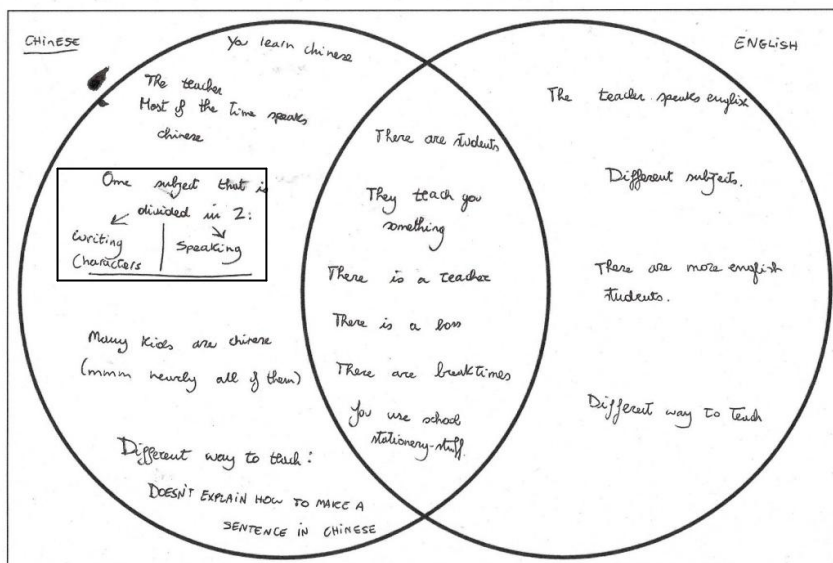 CHINESE
You learn chinese
The teacher
Most of the time speaks
chinese
One subject that is
divided in 2:
Writing
Characters
Speaking
Many kids are chinese
(mmm nearly all of them)
Different way to teach:
DOESN'T EXPLAIN HOW TO MAKE A
SENTENCE IN CHINESE
There are students
They teach you
something
There is a teacher
There is a boss
There are breaktimes
You use school
stationery-stuff.
ENGLISH
The teacher speaks english
Different subjects.
There are more english
students.
Different way to teach